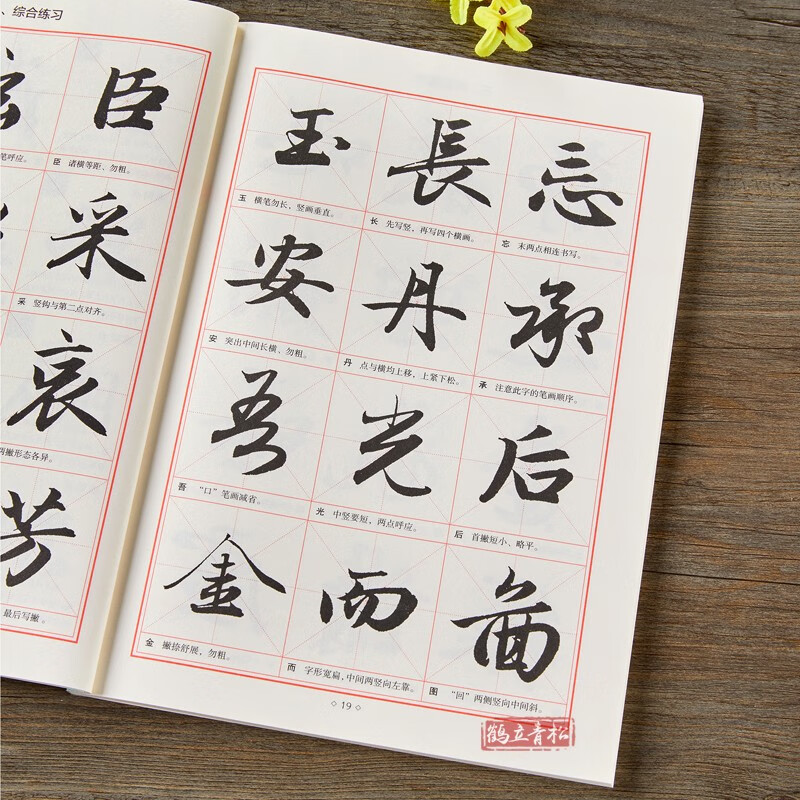 、综合练习
臣
笔呼应。
臣 诸横等距、勿粗。
采
采 竖钩与第二点对齐。
哀
两撇形态各异。
芳
最后写撇。
玉 長 忘
玉 横笔勿长，竖画垂直。
长 先写竖，再写四个横画。
忘 末两点相连书写。
安 丹 承
安 突出中间长横、勿粗。
丹 点与横均上移，上紧下松。
承 注意此字的笔画顺序。
吾 光 后
吾 “口”笔画减省。
光 中竖要短，两点呼应。
后 首撇短小、略平。
金 而 图
金 撇捺舒展，勿粗。
而 字形宽扁，中间两竖向左靠。
图 “回”两侧竖向中间斜。
◇19◇
鹤立青松